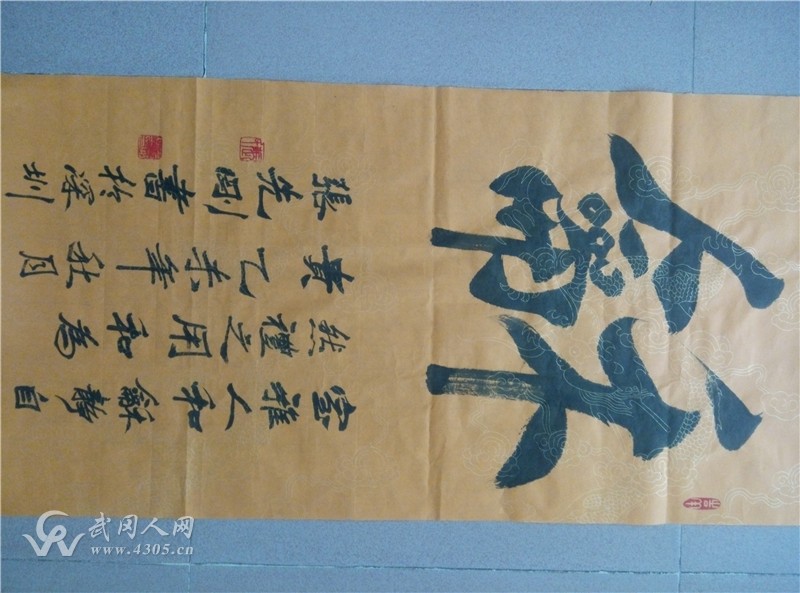 龢
室雅人和龢靜自
然禮之用和為
貴乙未年秋月
張先剛書於深圳
武冈人网
www.4305.cn